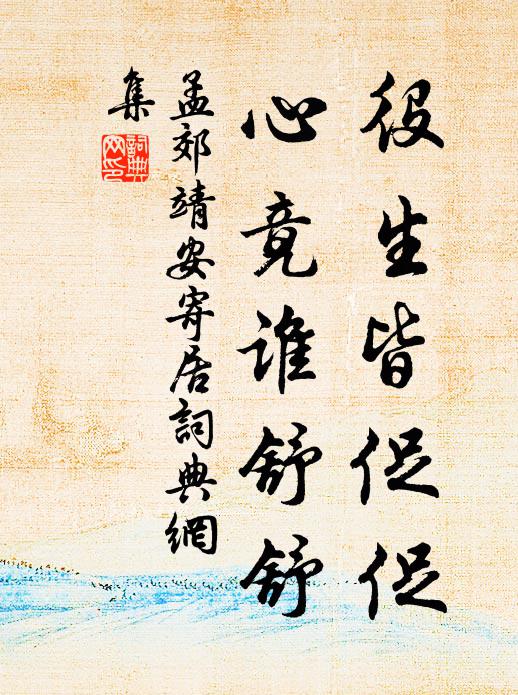 役生皆促促
心竟谁舒舒
孟郊靖安寄居詞典網
集
詞典
网印